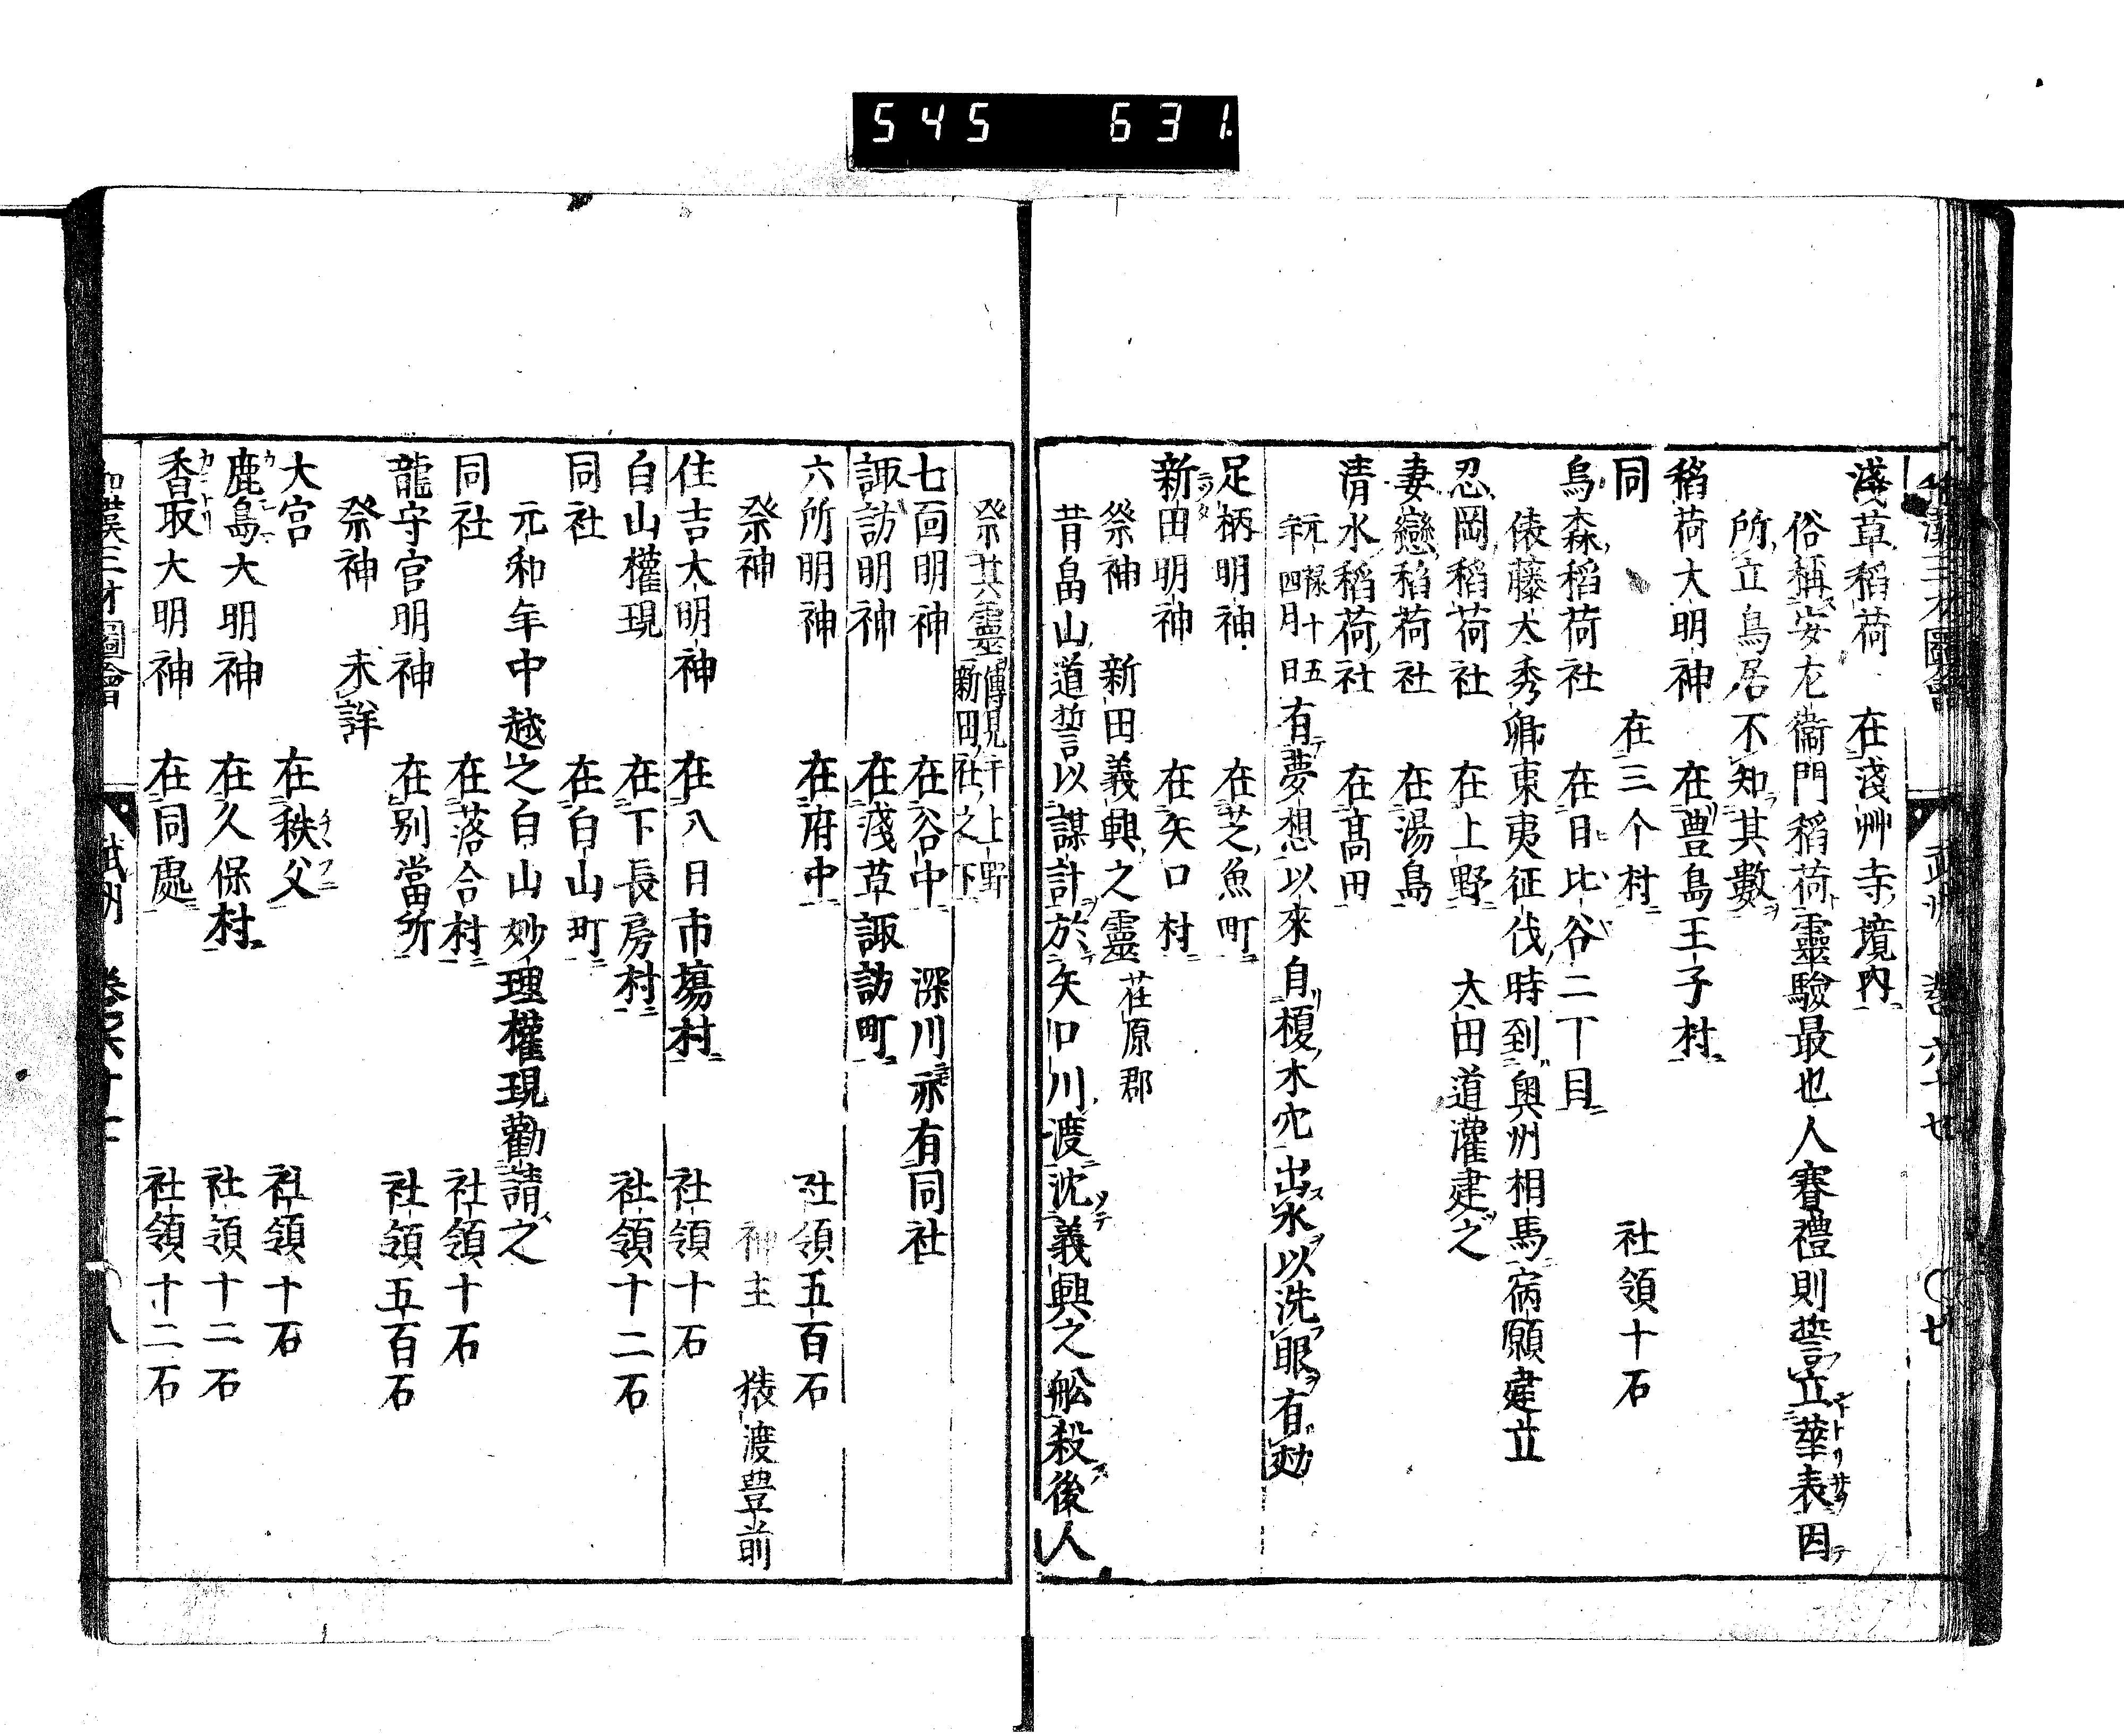 545 631
和漢三才圖會 武州 卷六十七 〇七
淺草稻荷 在淺艸寺境内
俗稱安左衞門稻荷靈驗最也人賽禮則誓立華表因
所立鳥居不知其數
稻荷大明神 在豊島王子村
同 在三个村 社領十石
烏森稻荷社 在日比谷二丁目
俵藤太秀郷東夷征伐時到奥州相馬宿願建立
忍岡稻荷社 在上野 太田道灌建之
妻戀稻荷社 在湯島
清水稻荷社 在髙田
元禄十五年四月日有夢想以來自榎木穴出水以洗眼有効
足柄明神 在芝魚町
新田明神 在矢口村
祭神 新田義興之靈 荏原郡
昔畠山道誓以謀計於矢口川渡沈義興之舩殺後人
祭其靈傳見于上野新田社之下
七面明神 在谷中 深川亦有同社
諏訪明神 在淺草諏訪町
六所明神 在府中 社領五百石
祭神 神主 猿渡豊前
住吉大明神 在八日市塲村 社領十石
白山權現 在下長房村 社領十二石
同社 在白山町
元和年中越之白山妙理權現勸請之
同社 在落合村 社領十石
龍守宮明神 在別當所 社領五百石
祭神 未詳
大宮 在秩父 社領十石
鹿島大明神 在久保村 社領十二石
香取大明神 在同處 社領十二石
和漢三才圖會 武州 卷六十七 〇八